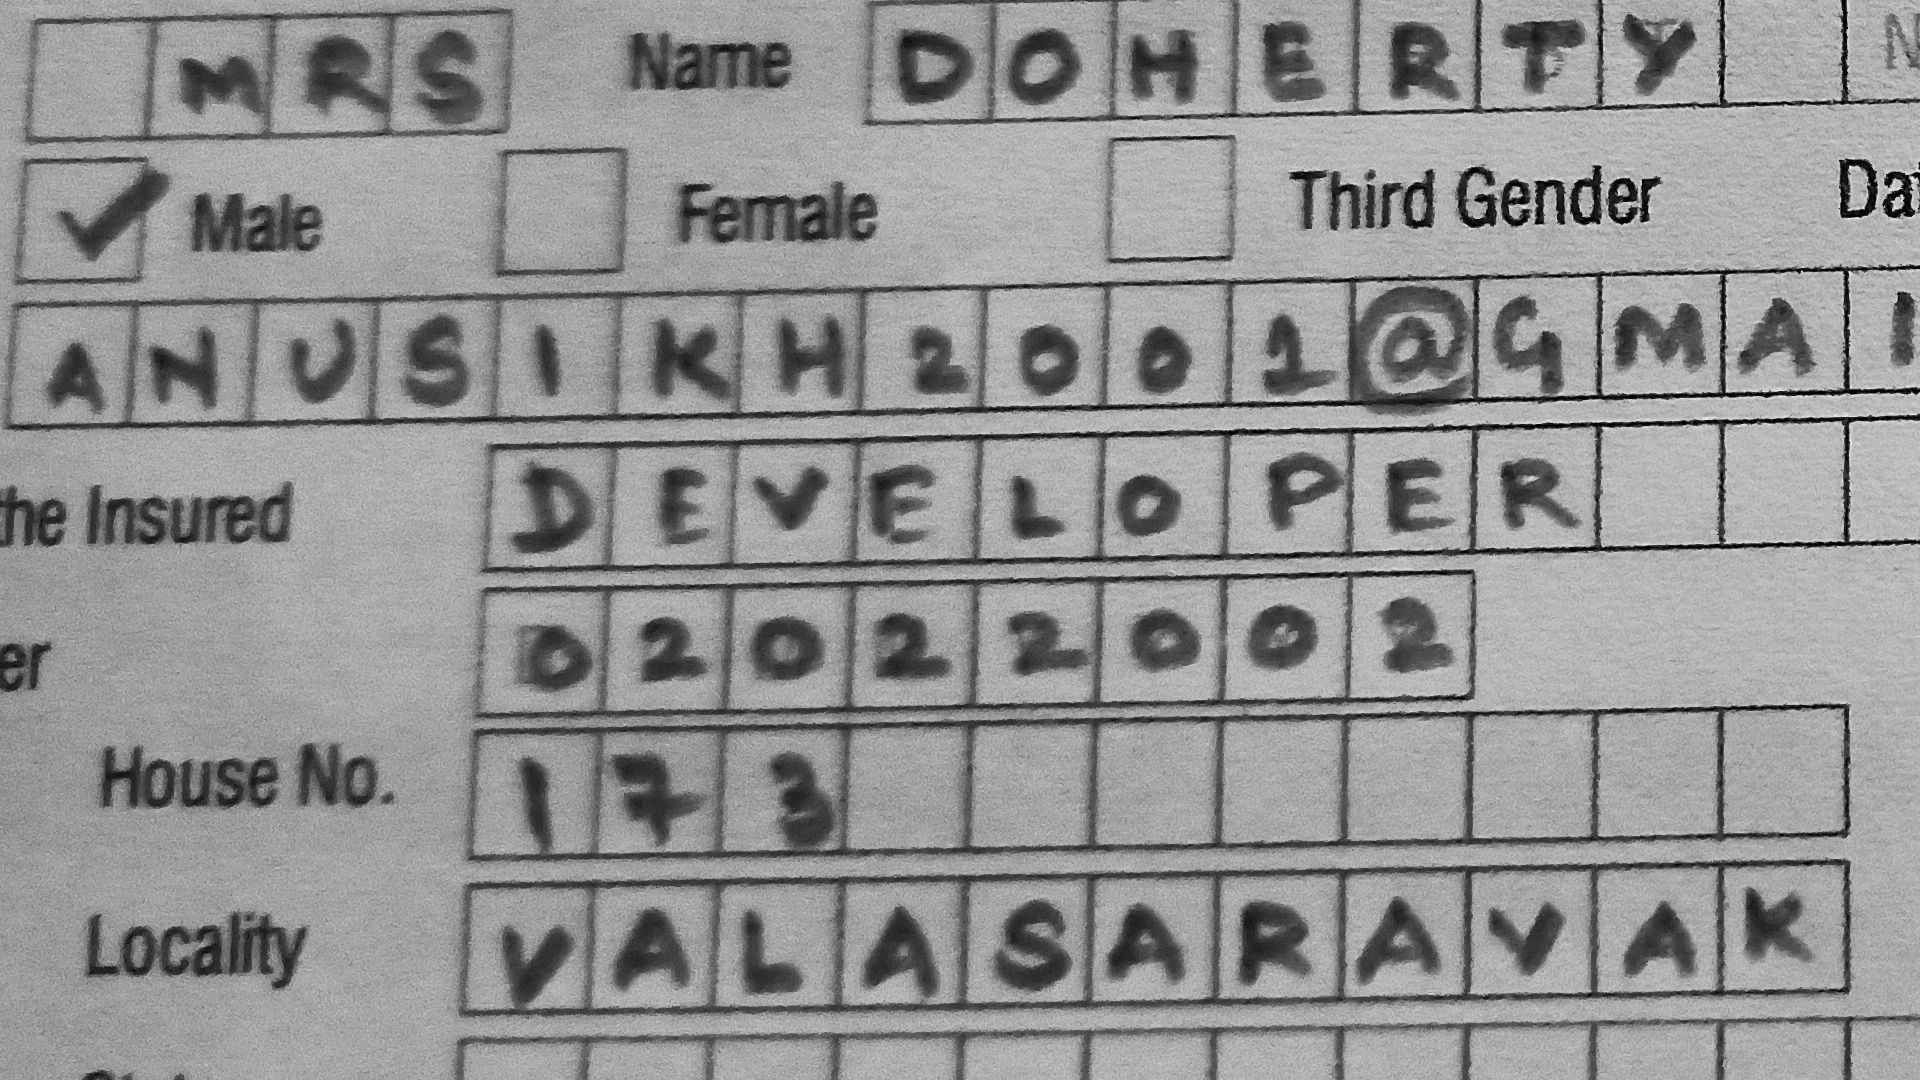 MRS Name DOHERTY N
Male Female Third Gender Dat
ANUSIKH2001@GMAI
the Insured DEVELOPER
er 02022002
House No. 173
Locality VALASARAVAK